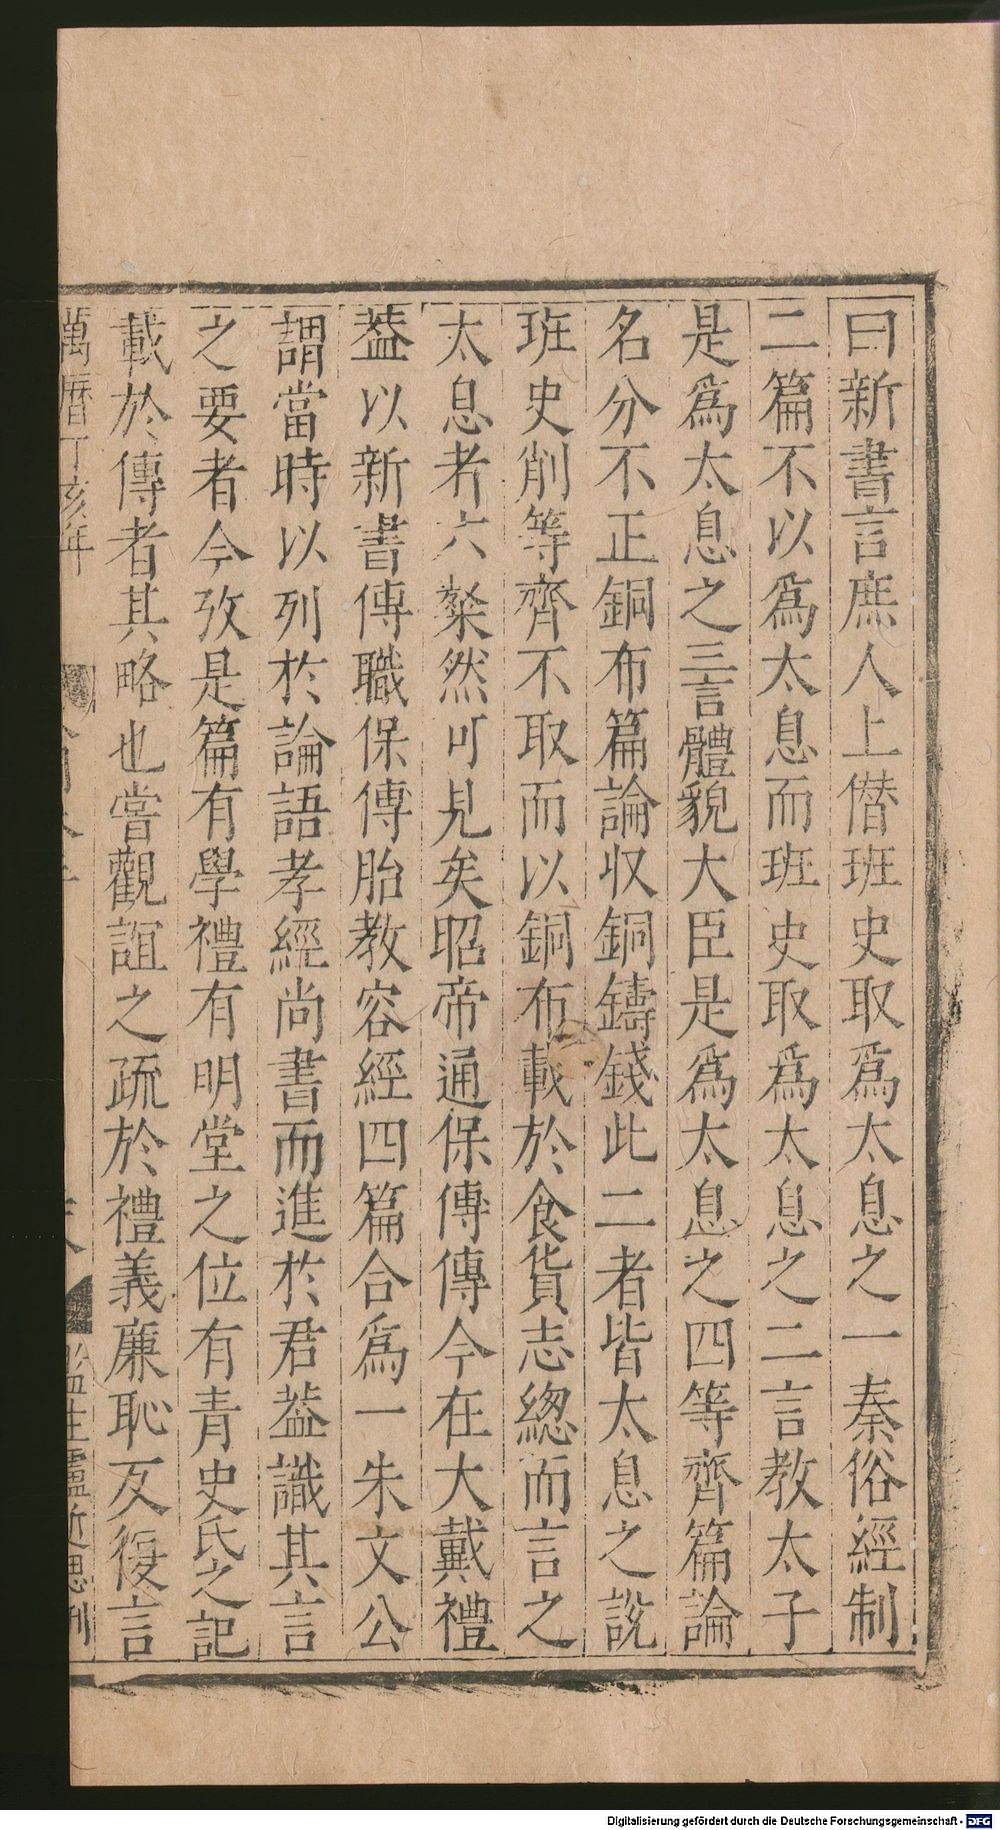 曰新書言庶人上僣班史取爲太息之一秦俗經制
二篇不以爲太息而班史取爲太息之二言教太子
是爲太息之三言體貌大臣是爲太息之四等齊篇論
名分不正銅布篇論収銅鑄錢此二者皆太息之說
班史削等齊不取而以銅布載於食貨志緫而言之
太息者六粲然可見矣昭帝通保傅傳今在大戴禮
葢以新書傅職保傅胎教容經四篇合爲一朱文公
謂當時以列於論語孝經尚書而進於君葢識其言
之要者今攷是篇有學禮有明堂之位有青史氏之記
載於傳者其略也嘗觀誼之疏於禮義廉恥反復言
萬曆丁亥年
監生盧近思刊
Digitalisierung gefördert durch die Deutsche Forschungsgemeinschaft - DFG